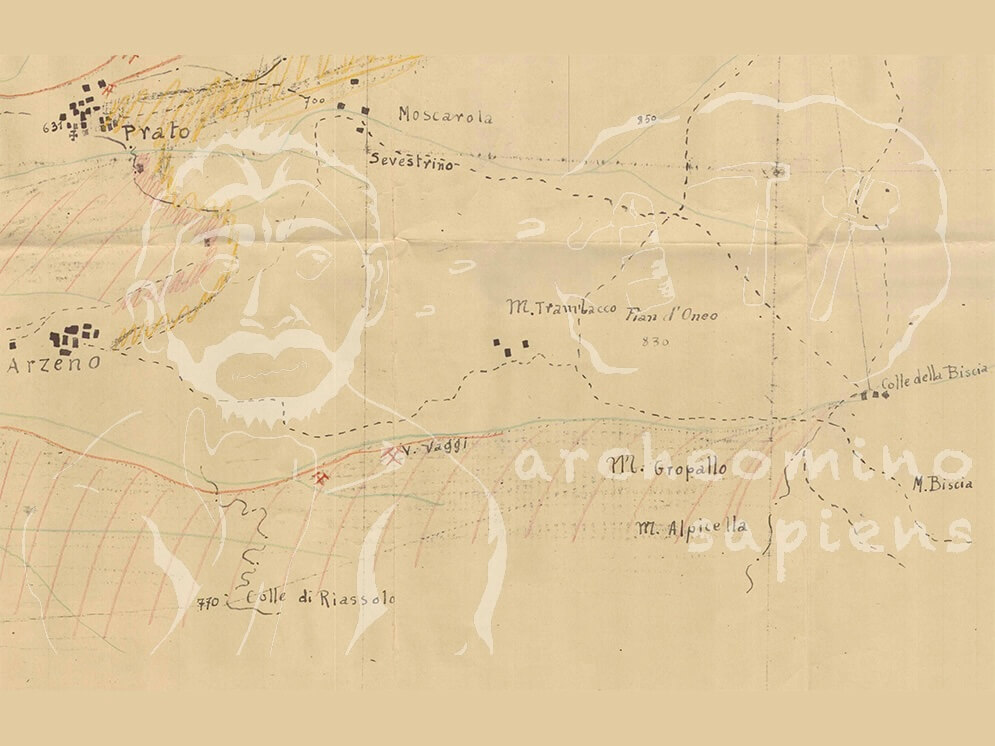 700
Moscarola
850
631
Prato
Sevestrino
M. Trambacco
Pian d'Oneo
830
Arzeno
Colle della Biscia
V. Vaggi
archeomino
M. Gropallo
M. Biscia
M. Alpicella
sapiens
770
Colle di Riassolo